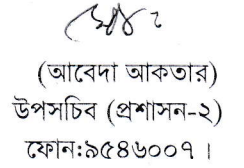 (আবেদা আকতার)
উপসচিব (প্রশাসন-২)
ফোন:৯৫৪৬০০৭।